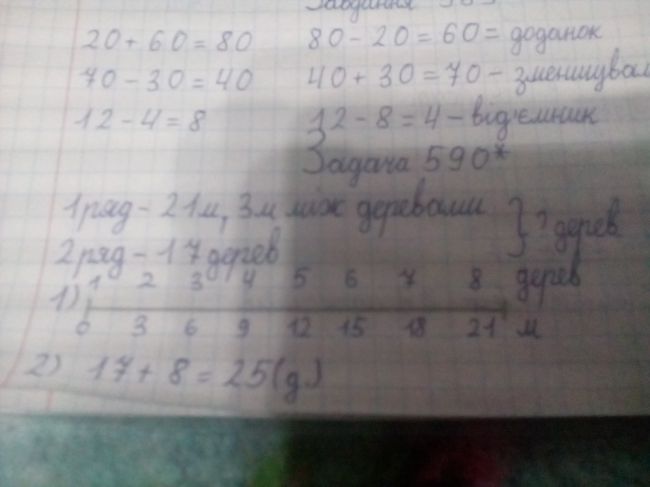 Завдання
20 + 60 = 80 80 - 20 = 60 = доданок
70 - 30 = 40 40 + 30 = 70 - зменшувал
12 - 4 = 8 12 - 8 = 4 - від'ємник
Задача 590*
1 ряд - 21 м, 3 м між деревами
2 ряд - 17 дерев } ? дерев
1 2 3 4 5 6 7 8 дерев
1)
0 3 6 9 12 15 18 21 м
2) 17 + 8 = 25 (д)